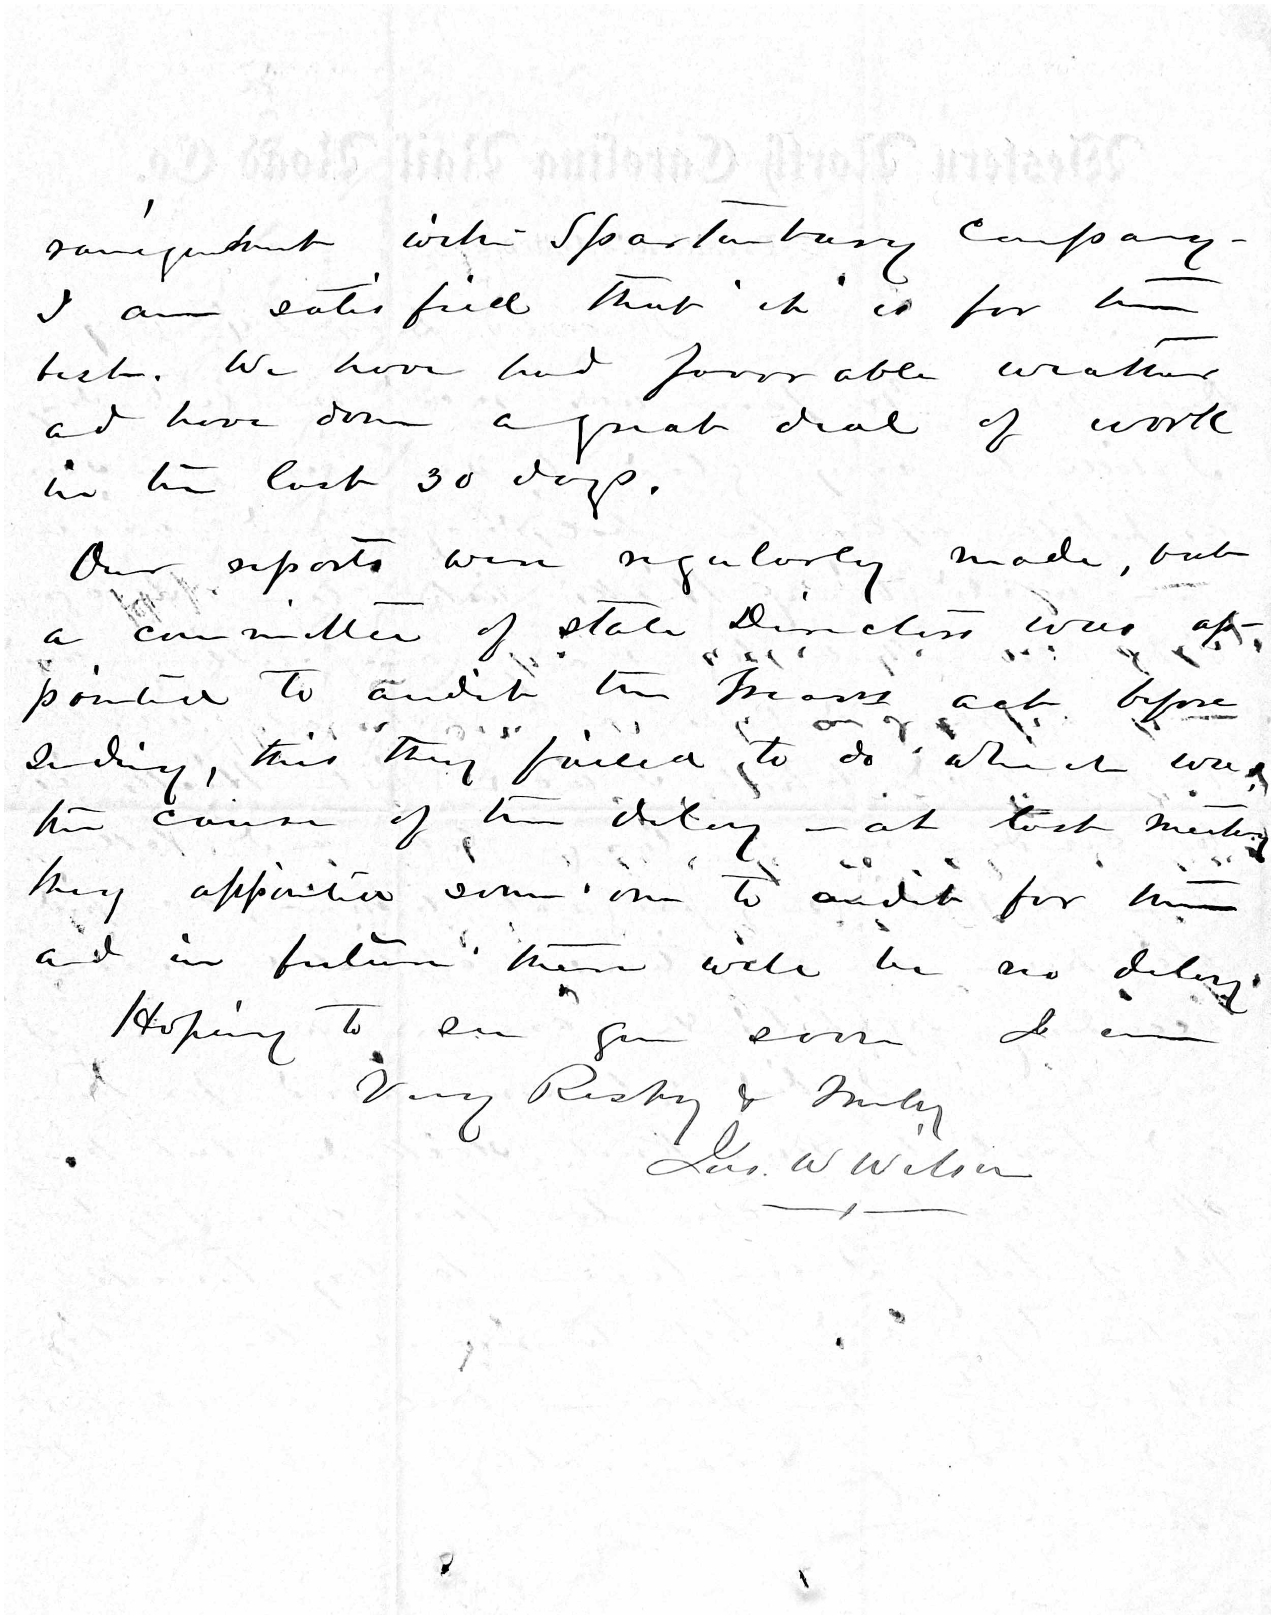 Western North Carolina Rail Road Co.
rangement with Spartanburg Company -
I am satisfied that it is for the
best. We have had favorable weather
and have done a great deal of work
in the last 30 days.
Our reports were regularly made, but
a committee of state Directors was ap-
pointed to audit the Treasrs act before
sending, this they failed to do which was
the cause of the delay - at last meeting
they appointed some one to audit for them
and in future there will be no delay
Hoping to see you soon I am
Very Respy & Truly
Jas. W Wilson